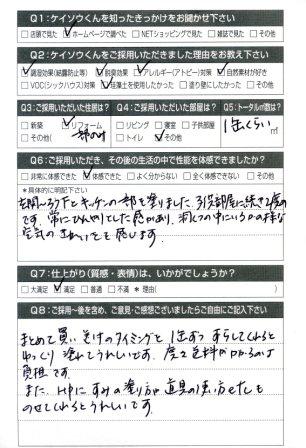 Q1：ケイソウくんを知ったきっかけをお聞かせ下さい
□店頭で見た ☑ホームページで調べた □NETショッピングで見た □雑誌で見た □その他
Q2：ケイソウくんをご採用いただきました理由をお教え下さい
☑調湿効果(結露防止等) ☑脱臭効果 ☑アレルギー(アトピー)対策 ☑自然素材が好き
□VOC(シックハウス)対策 ☑珪藻土を使用したかった □塗り壁にしたかった □その他
Q3：ご採用いただいた住居は？ Q4：ご採用いただいた部屋は？ Q5：トータル㎡数は？
□新築 ☑リフォーム □リビング □寝室 □子供部屋 1缶くらい
□その他( 一部のみ □トイレ ☑その他 ㎡
Q6：ご採用いただき、その後の生活の中で性能を体感できましたか？
□非常に体感できた ☑体感できた □よく分からない □全く体感できない □その他
*具体的に明記下さい
キッチンの一部を塗りました。
です。常にひんやりとした感があり、洞くつの中にいるかの様な
空気の きれいさを感じます。
Q7：仕上がり(質感・表情)は、いかがでしょうか？
□大満足 ☑満足 □普通 □不満 *理由( )
Q8：ご採用～後を含め、ご意見・ご感想ございましたらご自由にご記入下さい
まとめて買い 送付のタイミングを 1缶ずつ ずらしてくれると
ゆっくり 塗れてうれしいです。度々送料がかかるのは
負担です。
また、HPに すみの塗り方や 道具の使い方なども
のせてくれるとうれしいです。